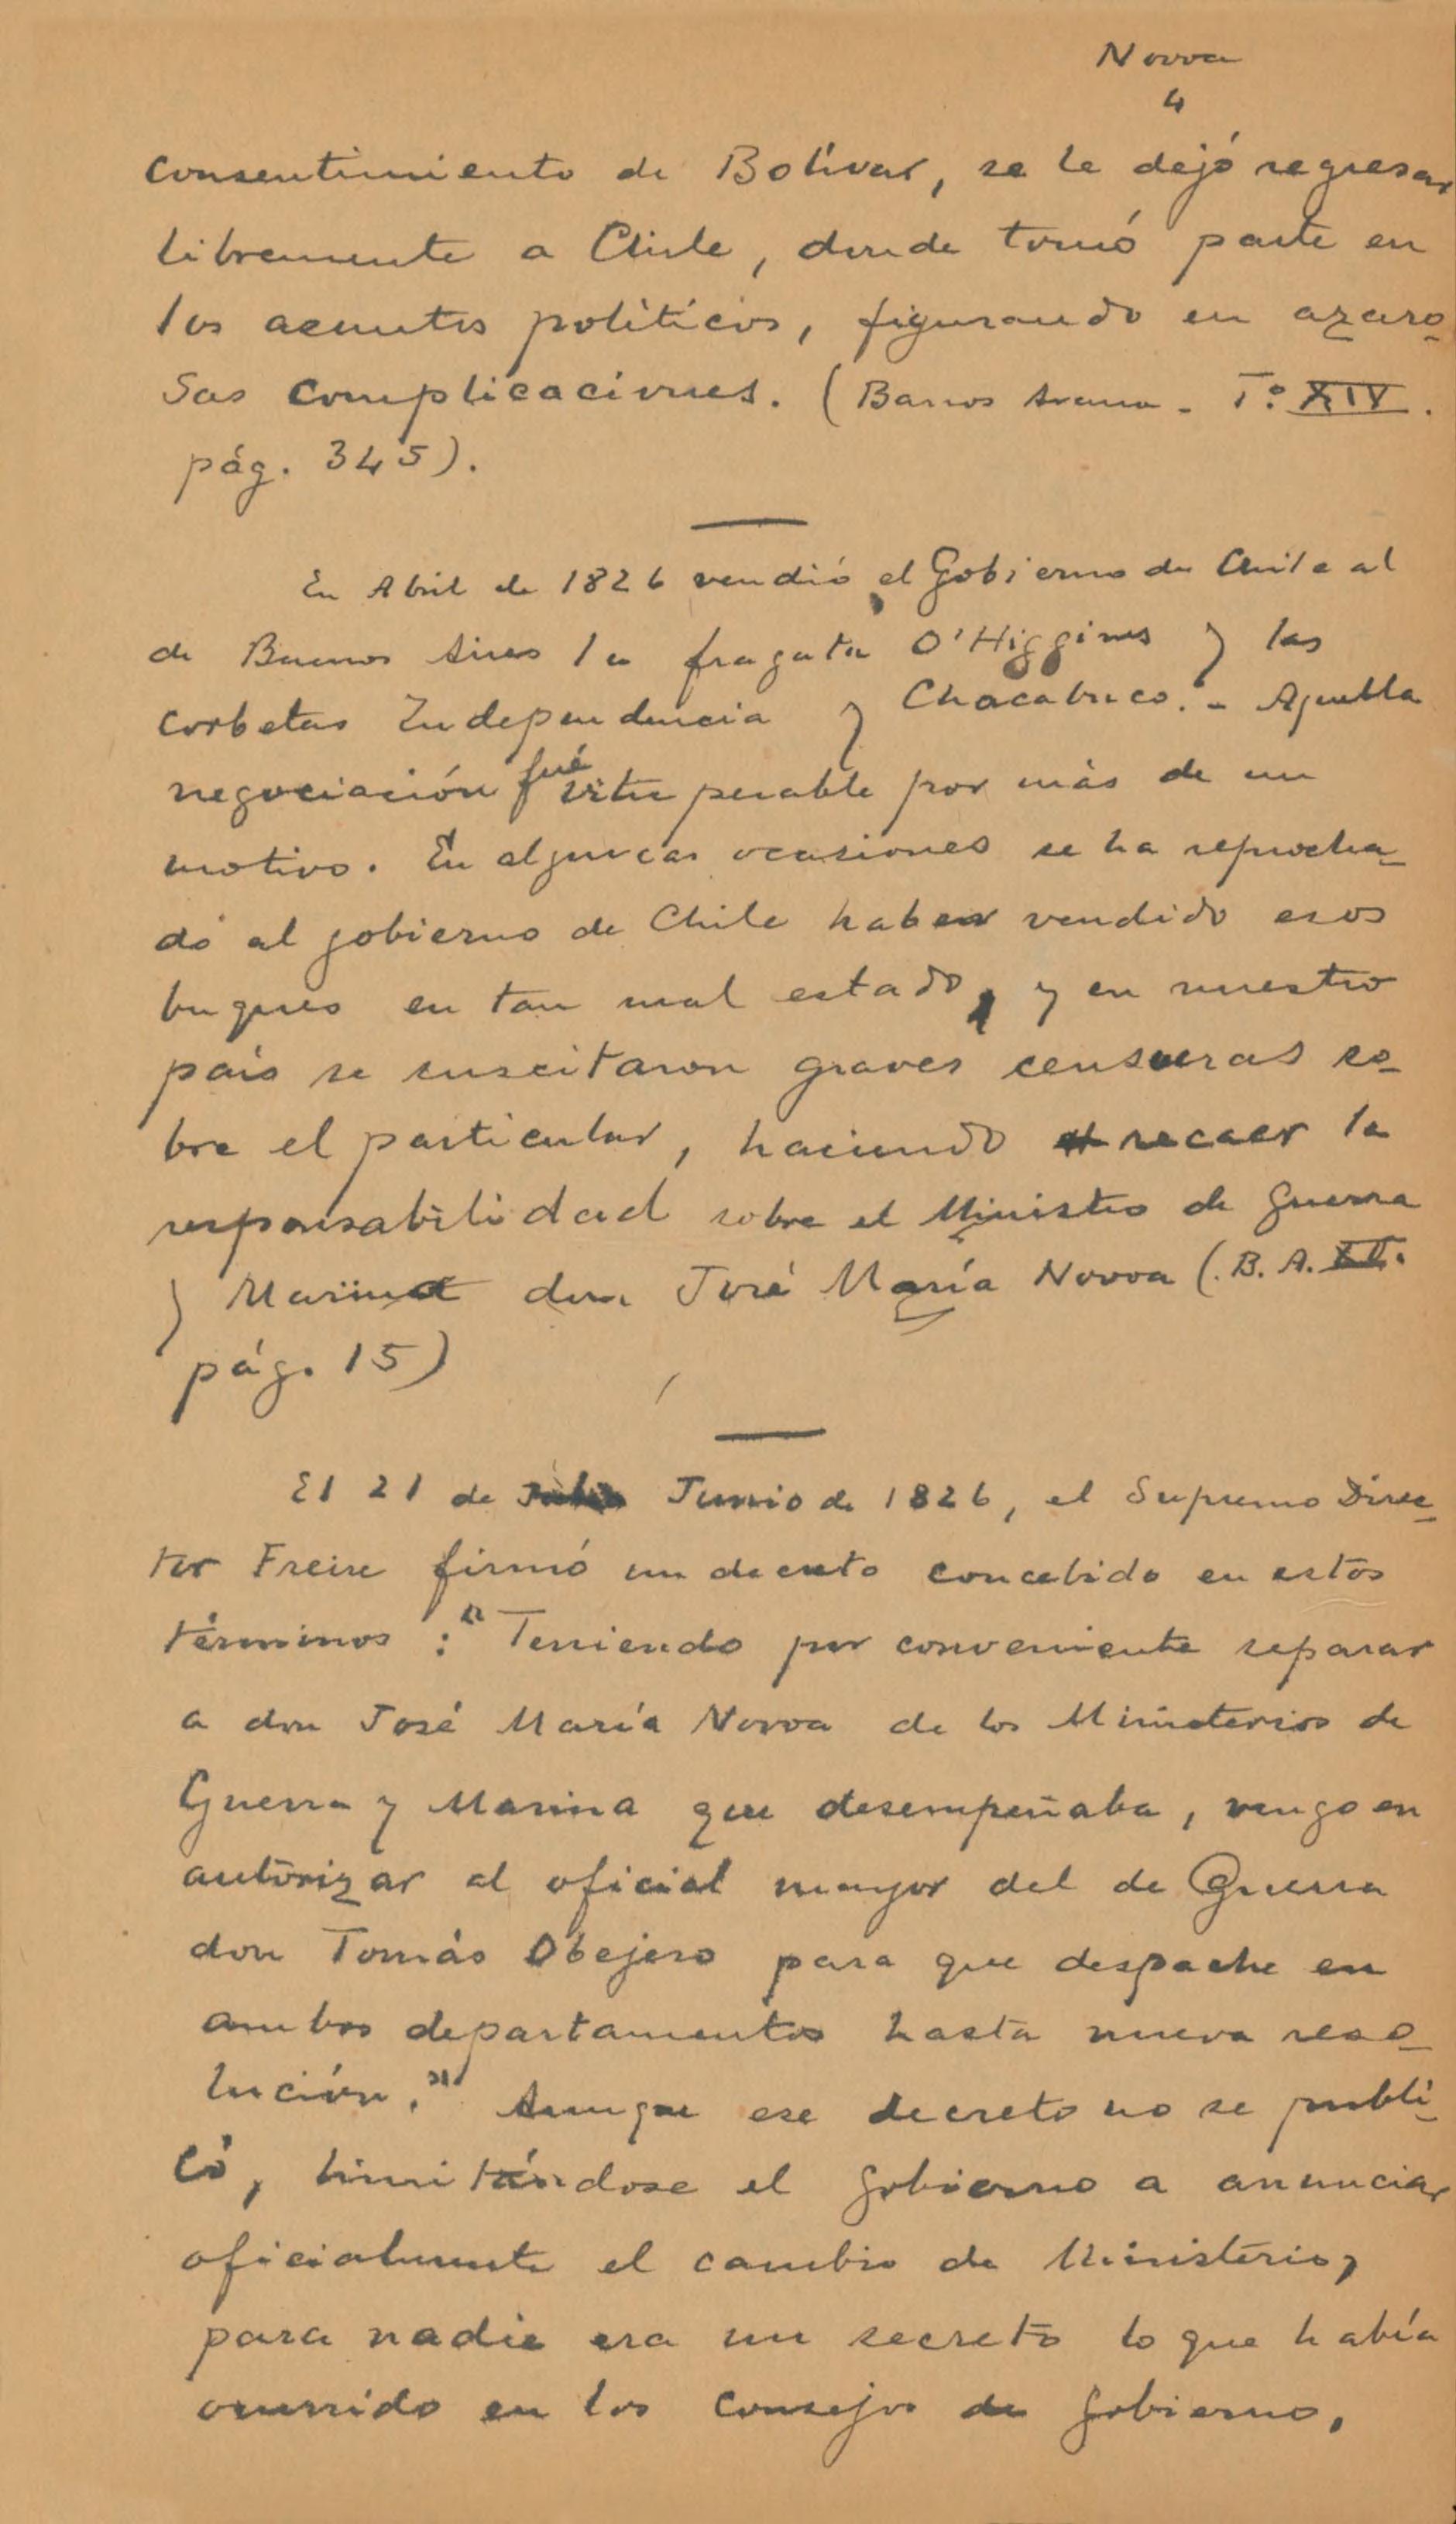 Novoa
4
consentimiento de Bolívar, se le dejó regresar
libremente a Chile, donde tomó parte en
los asuntos políticos, figurando en azaro-
sas complicaciones. (Barros Arana - T.º XIV.
pág. 345).
En Abril de 1826 vendió el Gobierno de Chile al
de Buenos Aires la fragata O'Higgins y las
corbetas Independencia y Chacabuco. - Aquella
negociación fué vituperable por más de un
motivo. En algunas ocasiones se ha reprocha-
do al gobierno de Chile haber vendido esos
buques en tan mal estado, y en nuestro
país se suscitaron graves censuras so-
bre el particular, haciendo recaer la
responsabilidad sobre el Ministro de Guerra
y Marina don José María Novoa (B. A. XV.
pág. 15)
El 21 de Junio de 1826, el Supremo Direc-
tor Freire firmó un decreto concebido en estos
términos: "Teniendo por conveniente separar
a don José María Novoa de los Ministerios de
Guerra y Marina que desempeñaba, vengo en
autorizar al oficial mayor del de Guerra
don Tomás Obejero para que despache en
ambos departamentos hasta nueva reso-
lución." Aunque ese decreto no se publi-
có, limitándose el gobierno a anunciar
oficialmente el cambio de Ministerio,
para nadie era un secreto lo que había
ocurrido en los consejos de gobierno.